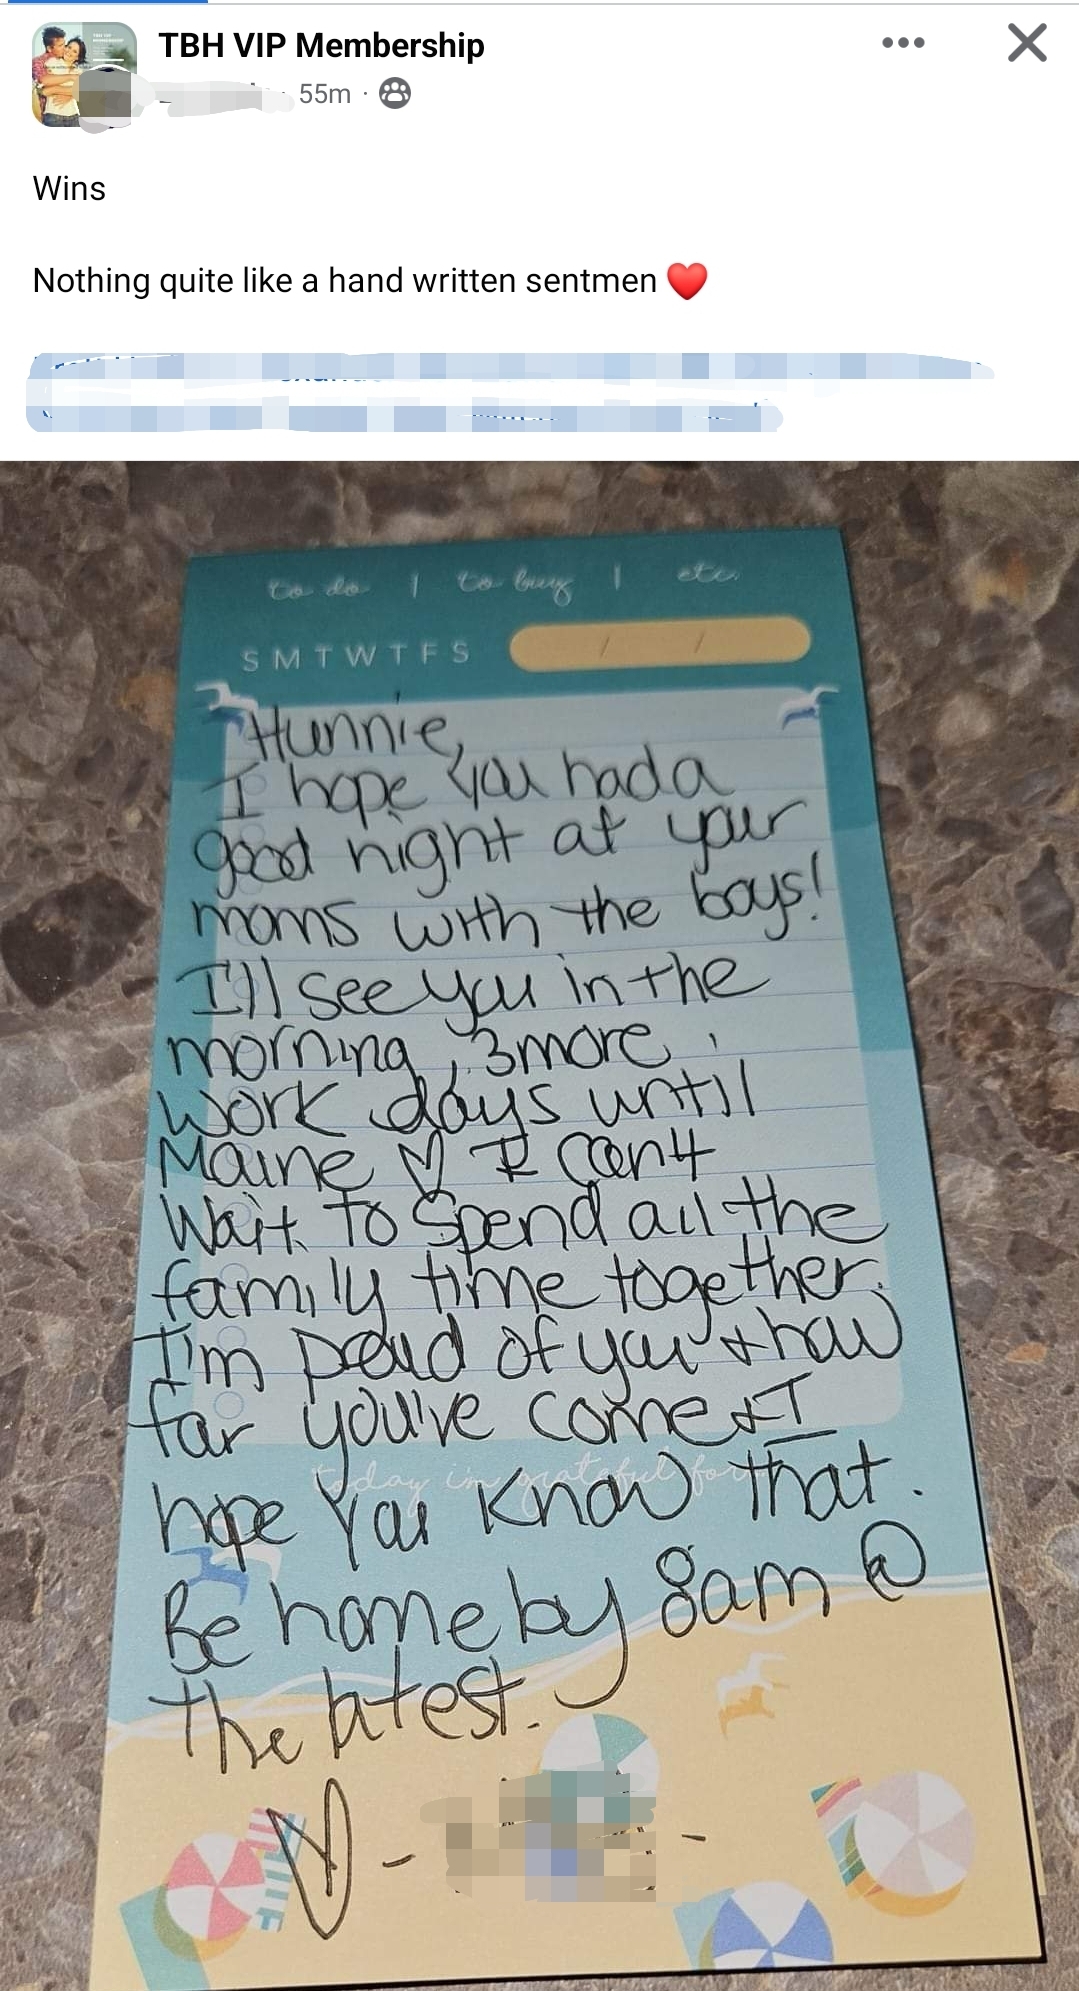 TBH VIP Membership
55m
Wins
Nothing quite like a hand written sentmen ❤️
to do | to buy | etc.
S M T W T F S / /
Hunnie,
I hope you had a
good night at your
moms with the boys!
I'll see you in the
morning, 3 more
work days until
Maine ♡ I can't
wait to spend all the
family time together.
I'm proud of you & how
far you've come & I
today i'm grateful for...
hope you know that.
Be home by 8am @
the latest.
♡ - -